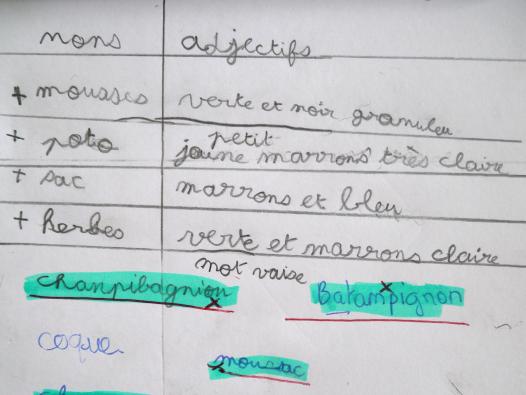 noms adjectifs
+ mousses verte et noir granuleu
petit
+ poto jaune marrons très claire
+ sac marrons et bleu
+ herbes verte et marrons claire
mot vaise
chanpibagnion Batampignon
coque
moussac